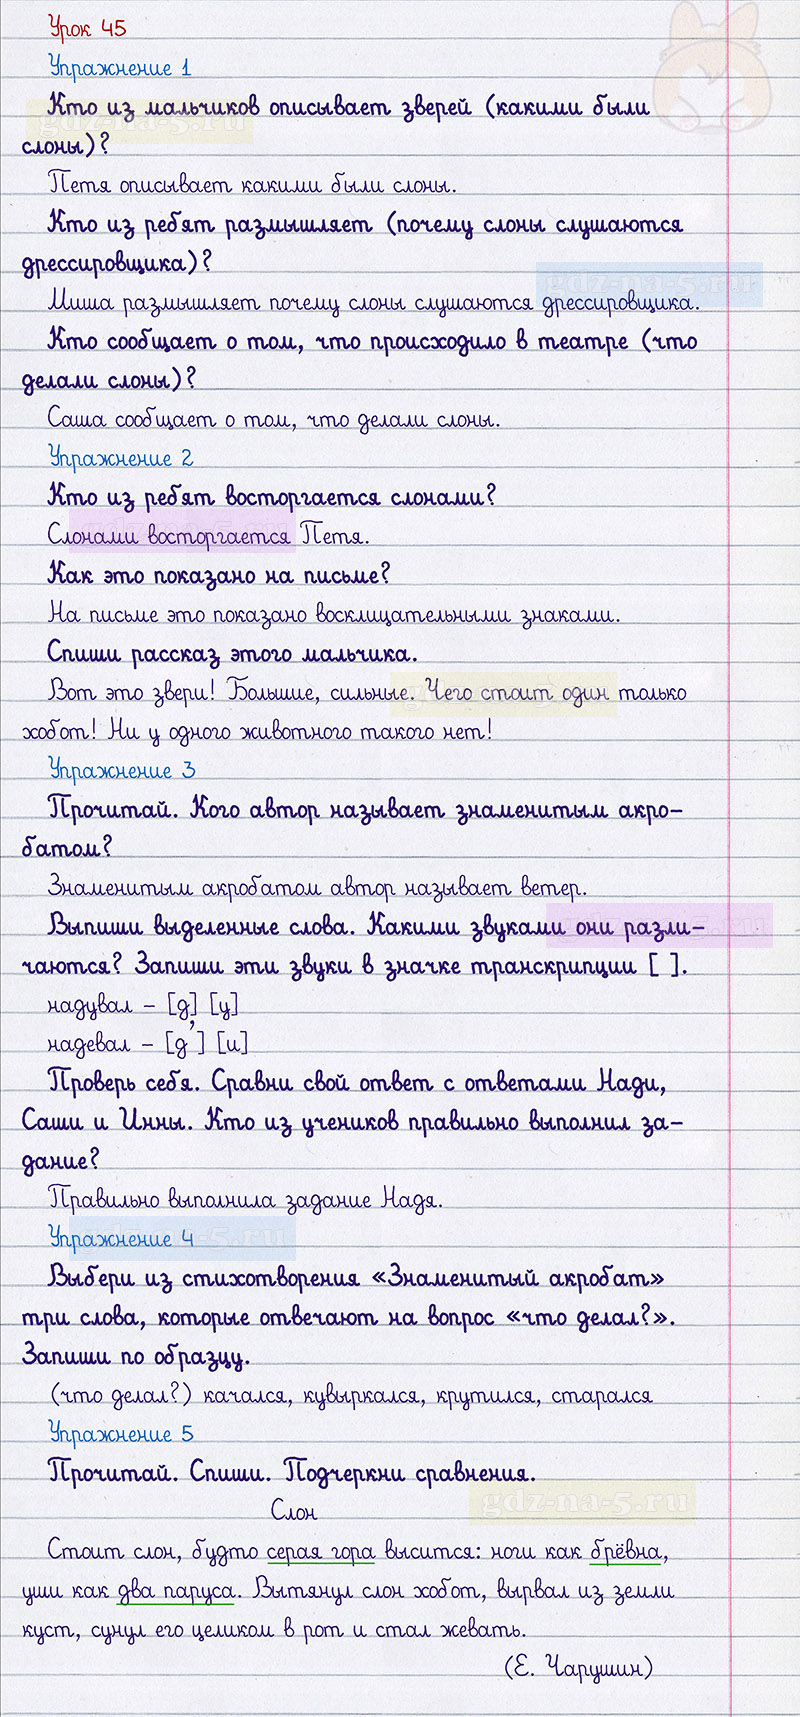 Урок 45
Упражнение 1
Кто из мальчиков описывает зверей (какими были
слоны)?
Петя описывает какими были слоны.
Кто из ребят размышляет (почему слоны слушаются
дрессировщика)?
gdz-na-5.ru
Миша размышляет почему слоны слушаются дрессировщика.
Кто сообщает о том, что происходило в театре (что
делали слоны)?
Саша сообщает о том, что делали слоны.
Упражнение 2
Кто из ребят восторгается слонами?
Слонами восторгается Петя.
Как это показано на письме?
На письме это показано восклицательными знаками.
Спиши рассказ этого мальчика.
Вот это звери! Большие, сильные. Чего стоит один только
хобот! Ни у одного животного такого нет!
Упражнение 3
Прочитай. Кого автор называет знаменитым акро-
батом?
Знаменитым акробатом автор называет ветер.
Выпиши выделенные слова. Какими звуками они разли-
чаются? Запиши эти звуки в значке транскрипции [ ].
надувал – [д] [у]
надевал – [д'] [и]
Проверь себя. Сравни свой ответ с ответами Нади,
Саши и Инны. Кто из учеников правильно выполнил за-
дание?
Правильно выполнила задание Надя.
Упражнение 4
Выбери из стихотворения «Знаменитый акробат»
три слова, которые отвечают на вопрос «что делал?».
Запиши по образцу.
(что делал?) качался, кувыркался, крутился, старался
Упражнение 5
Прочитай. Спиши. Подчеркни сравнения.
gdz-na-5.ru
Слон
Стоит слон, будто серая гора высится: ноги как брёвна,
уши как два паруса. Вытянул слон хобот, вырвал из земли
куст, сунул его целиком в рот и стал жевать.
(Е. Чарушин)